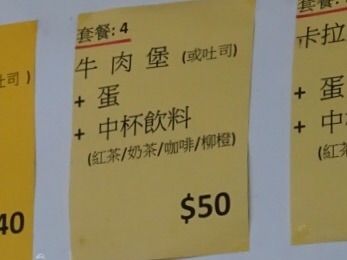 套餐:4
牛肉堡(或吐司)
+ 蛋
+ 中杯飲料
(紅茶/奶茶/咖啡/柳橙)
$50
吐司)
40
套餐:
卡拉
+ 蛋
+ 中
(紅茶